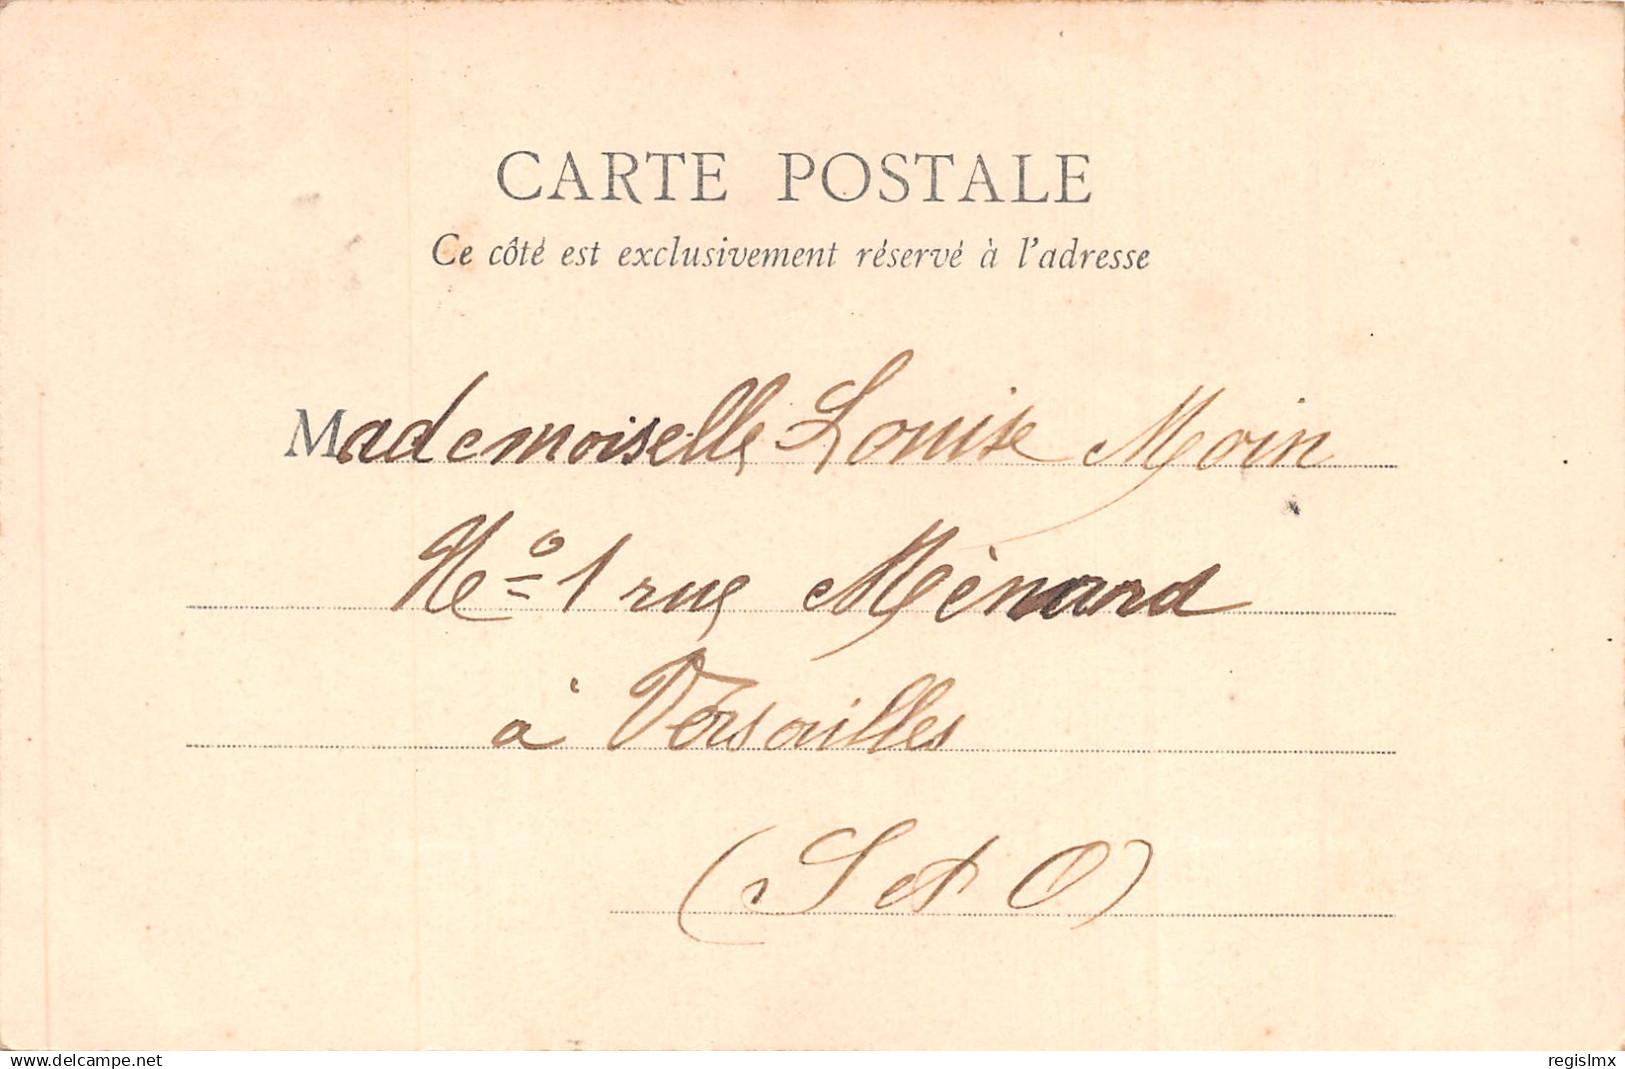 CARTE POSTALE
Ce côté est exclusivement réservé à l'adresse
Mademoiselle Louise Moin
No 1 rue Ménard
à Versailles
(S et O)
www.delcampe.net
regislmx